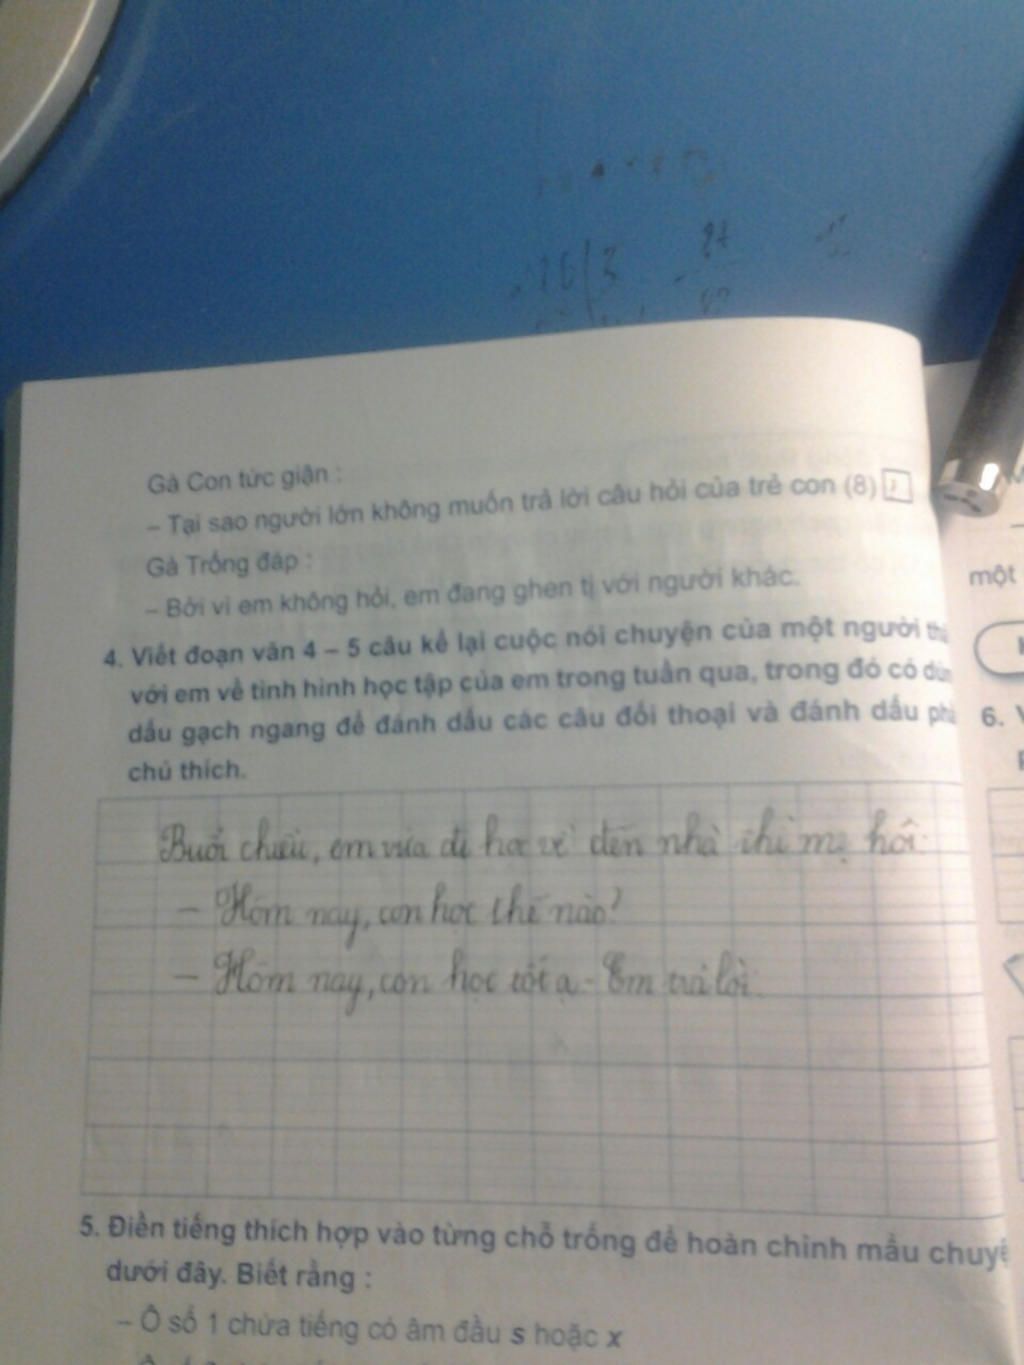 Gà Con tức giận :
– Tại sao người lớn không muốn trả lời câu hỏi của trẻ con (8)
Gà Trống đáp :
– Bởi vì em không hỏi, em đang ghen tị với người khác.
4. Viết đoạn văn 4 – 5 câu kể lại cuộc nói chuyện của một người
với em về tình hình học tập của em trong tuần qua, trong đó có
dấu gạch ngang để đánh dấu các câu đối thoại và đánh dấu
chú thích.
Buổi chiều, em vừa đi học về đến nhà thì mẹ hỏi:
– Hôm nay, con học thế nào?
– Hôm nay, con học tốt ạ – Em trả lời.
5. Điền tiếng thích hợp vào từng chỗ trống để hoàn chỉnh mẩu
dưới đây. Biết rằng :
– Ô số 1 chứa tiếng có âm đầu s hoặc x
một
6.